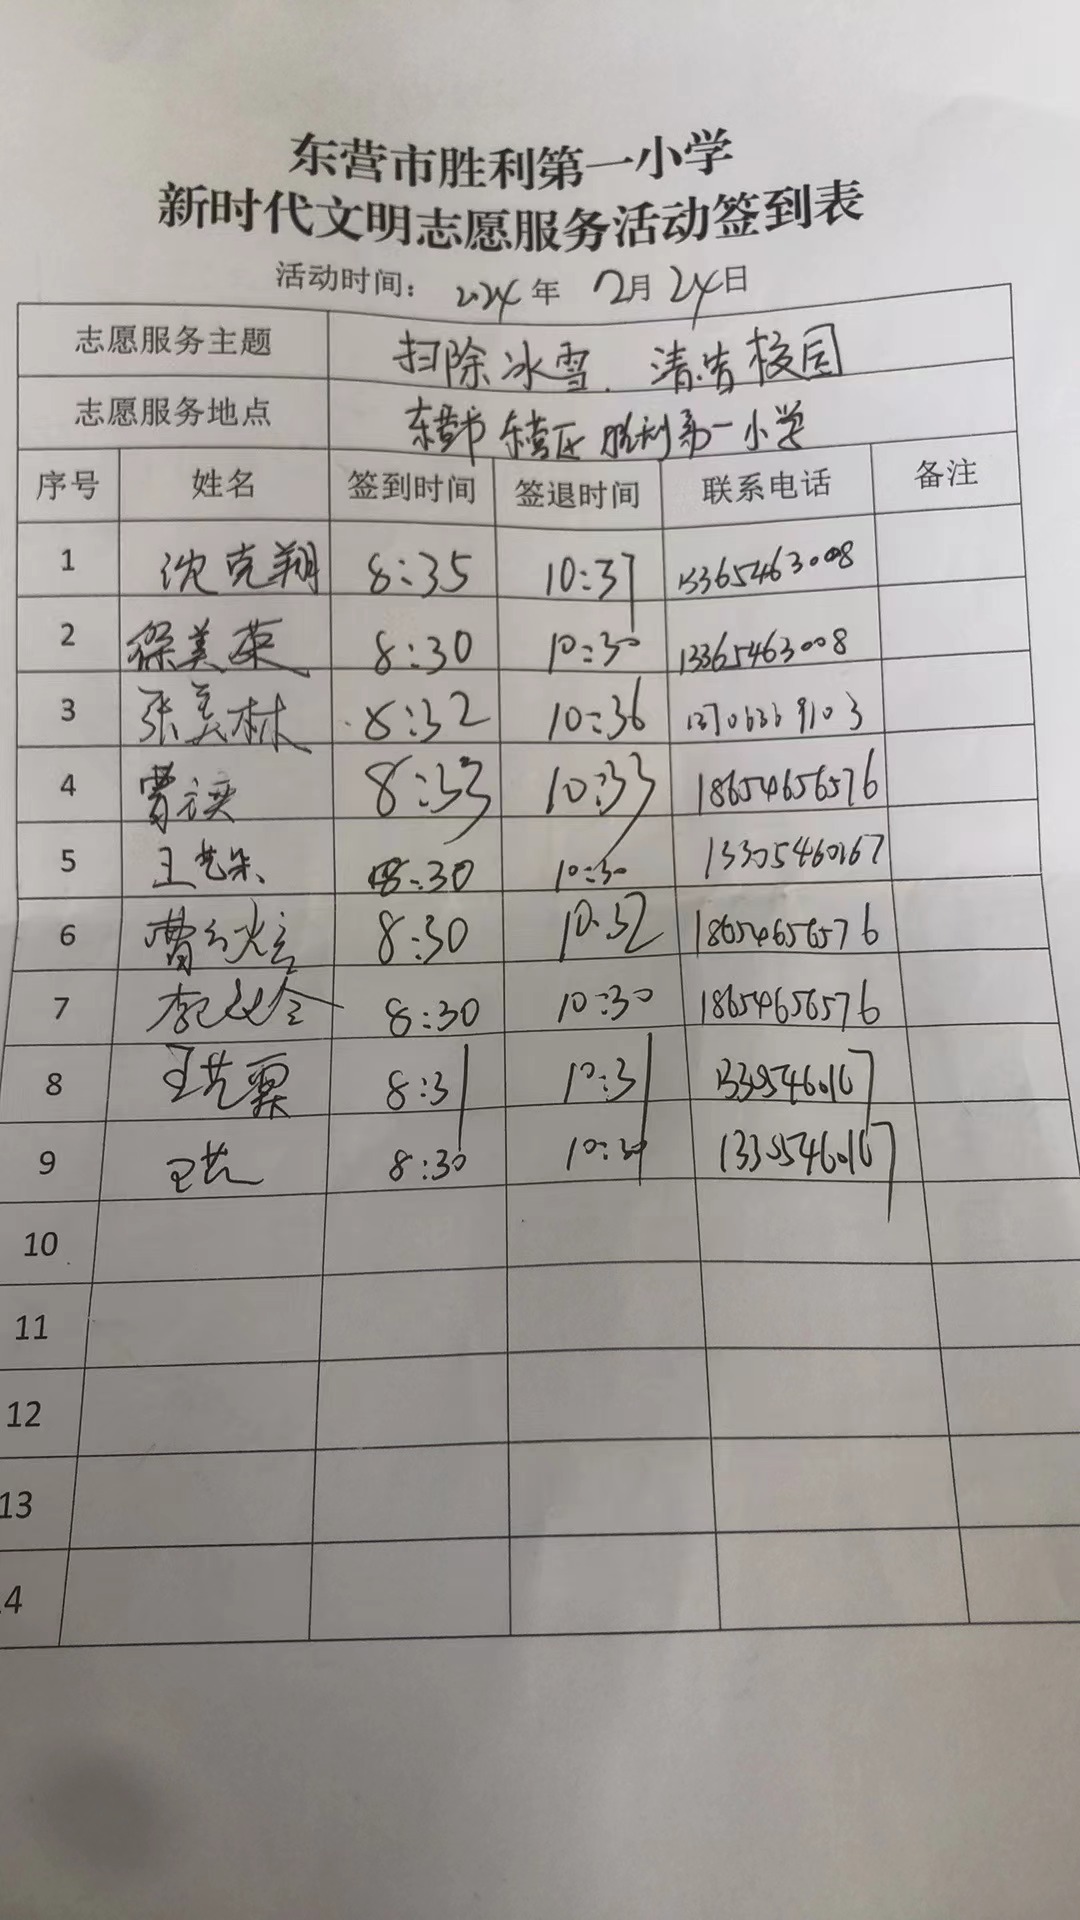 东营市胜利第一小学
新时代文明志愿服务活动签到表
活动时间：2024年 2月24日
志愿服务主题 扫除冰雪．清洁校园
志愿服务地点 东营市东营区胜利第一小学
序号 姓名 签到时间 签退时间 联系电话 备注
1 沈克翔 8:35 10:37 13365463008
2 徐美荣 8:30 10:30 13365463008
3 张美林 8:32 10:36 13706369103
4 曹 8:33 10:33 18654656576
5 王艺朵 8:30 10:30 13305460167
6 曹 8:30 10:32 18654656576
7 李 8:30 10:30 18654656576
8 王艺霖 8:31 10:31 13305460167
9 王艺 8:30 10:30 13305460167
10
11
12
13
14